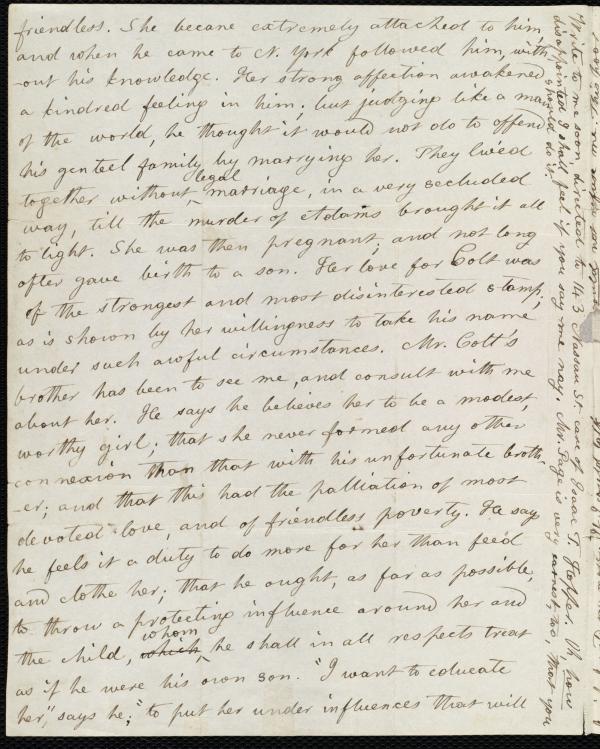 friendless. She became extremely attached to him,
and when he came to N. York followed him, with-
-out his knowledge. Her strong affection awakened
a kindred feeling in him; but judging like a man
of the world, he thought it would not do to offend
his genteel family by marrying her. They lived
together without legal marriage, in a very secluded
way, till the murder of Adams brought it all
to light. She was then pregnant, and not long
after gave birth to a son. Her love for Colt was
of the strongest and most disinterested stamp;
as is shown by her willingness to take his name
under such awful circumstances. Mr. Colt's
brother has been to see me, and consult with me
about her. He says he believes her to be a modest,
worthy girl; that she never formed any other
connexion than that with his unfortunate broth-
-er; and that this had the palliation of most
devoted love, and of friendless poverty. He says
he feels it a duty to do more for her than feed
and clothe her; that he ought, as far as possible,
to throw a protecting influence around her and
the child, which whom he shall in all respects treat
as if he were his own son. "I want to educate
her," says he; "to put her under influences that will
Write to me soon, directed to 143 Nassau St. care of Isaac T. Hopper. Oh, how
disappointed I shall feel if you say me nay. Mr. Page is very earnest, too, that you
should do it.